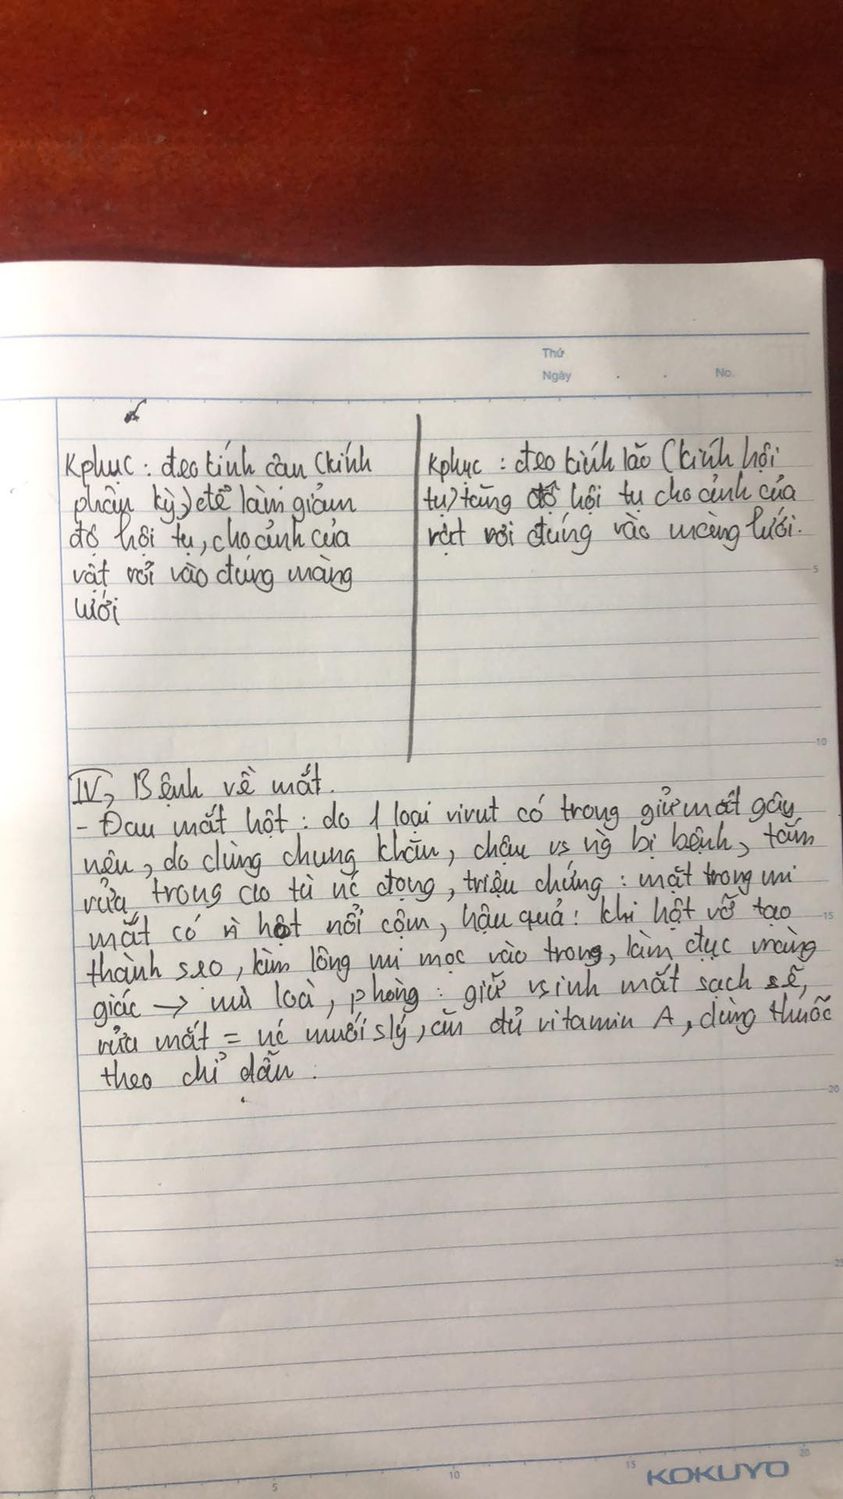 Thứ
Ngày . . No.
Kphục : đeo kính cận (kính
phân kỳ) để làm giảm
độ hội tụ, cho ảnh của
vật rơi vào đúng màng
lưới
Kphục : đeo kính lão (kính hội
tụ) tăng độ hội tụ cho ảnh của
vật rơi đúng vào màng lưới.
5
10
IV, Bệnh về mắt.
- Đau mắt hột : do 1 loại virut có trong giử mắt gây
nên, do dùng chung khăn, chậu vs ng bị bệnh, tắm
rửa trong ao tù nc đọng, triệu chứng : mặt trong mi
mắt có n hột nổi cộm, hậu quả : khi hột vỡ tạo
15
thành sẹo, làm lông mi mọc vào trong, làm đục màng
giác → mù loà, phòng : giữ vsinh mắt sạch sẽ,
rửa mắt = nc muối slý, ăn đủ vitamin A, dùng thuốc
theo chỉ dẫn .
20
25
5 10 15 20
KOKUYO